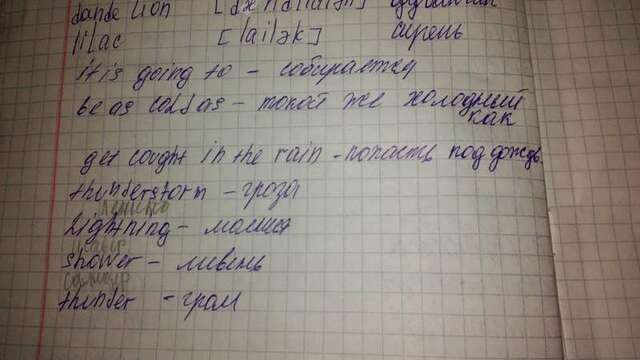 dande lion
lilac [lailək] сирень
it is going to – собирается
be as cold as – такой же холодный
как
get cought in the rain – попасть под дождь.
thunderstorm – гроза
Lightning – молния
shower – ливень
thunder – гром